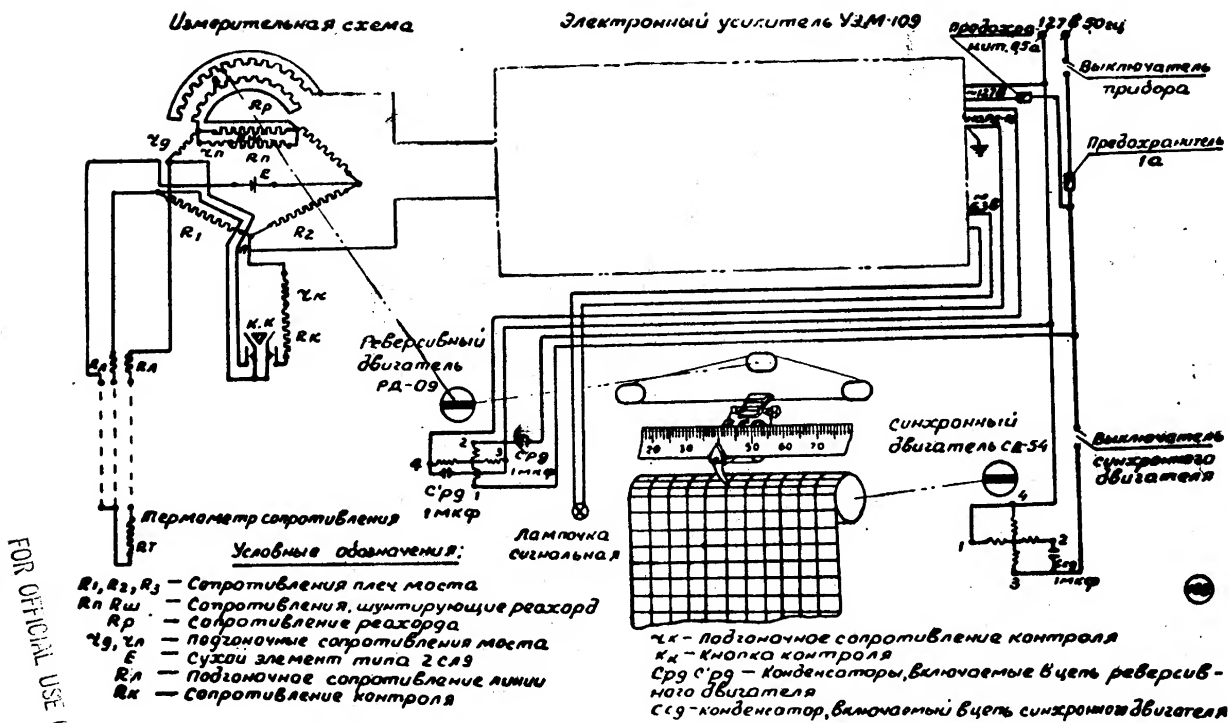 Измерительная схема
Электронный усилитель УЭМ-109
127в 50гц
Предохра
нит. 0,5а
Выключатель
прибора
~127В
Предохранитель
1а
~
6,3В
Rр
rд
rп
Rп
E
R1
R2
rк
К.К
Rк
Rл
Rл
Реверсивный
двигатель
РД-09
2
4
3
1
Срд
1мкф
С'рд
1мкф
20 30 50 60 70
Синхронный
двигатель СД-54
Выключатель
синхронного
двигателя
4
1
2
3
Ссд
1мкф
Термометр сопротивления
Rт
Лампочка
сигнальная
Условные обозначения:
R1, R2, R3 — Сопротивления плеч моста
Rп Rш — Сопротивления, шунтирующие реахорд
Rр — Сопротивление реахорда
rд, rп — Подгоночные сопротивления моста
E — Сухой элемент типа 2СЛЭ
Rл — Подгоночное сопротивление линии
Rк — Сопротивление контроля
rк — Подгоночное сопротивление контроля
Кк — Кнопка контроля
Срд С'рд — Конденсаторы, включаемые в цепь реверсив-
ного двигателя
Ссд — конденсатор, включаемый в цепь синхронного двигателя
FOR OFFICIAL USE